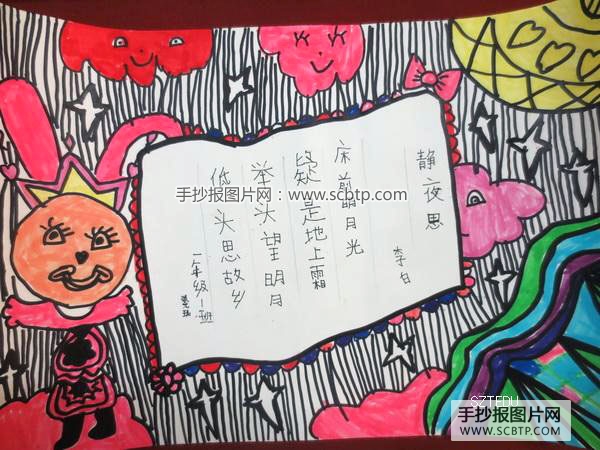 静夜思
李白
床前明月光
疑是地上霜
举头望明月
低头思故乡
一年级1班
手抄报图片网：www.scbtp.com
SZTEDU
手抄报图片网
WWW.SCBTP.COM